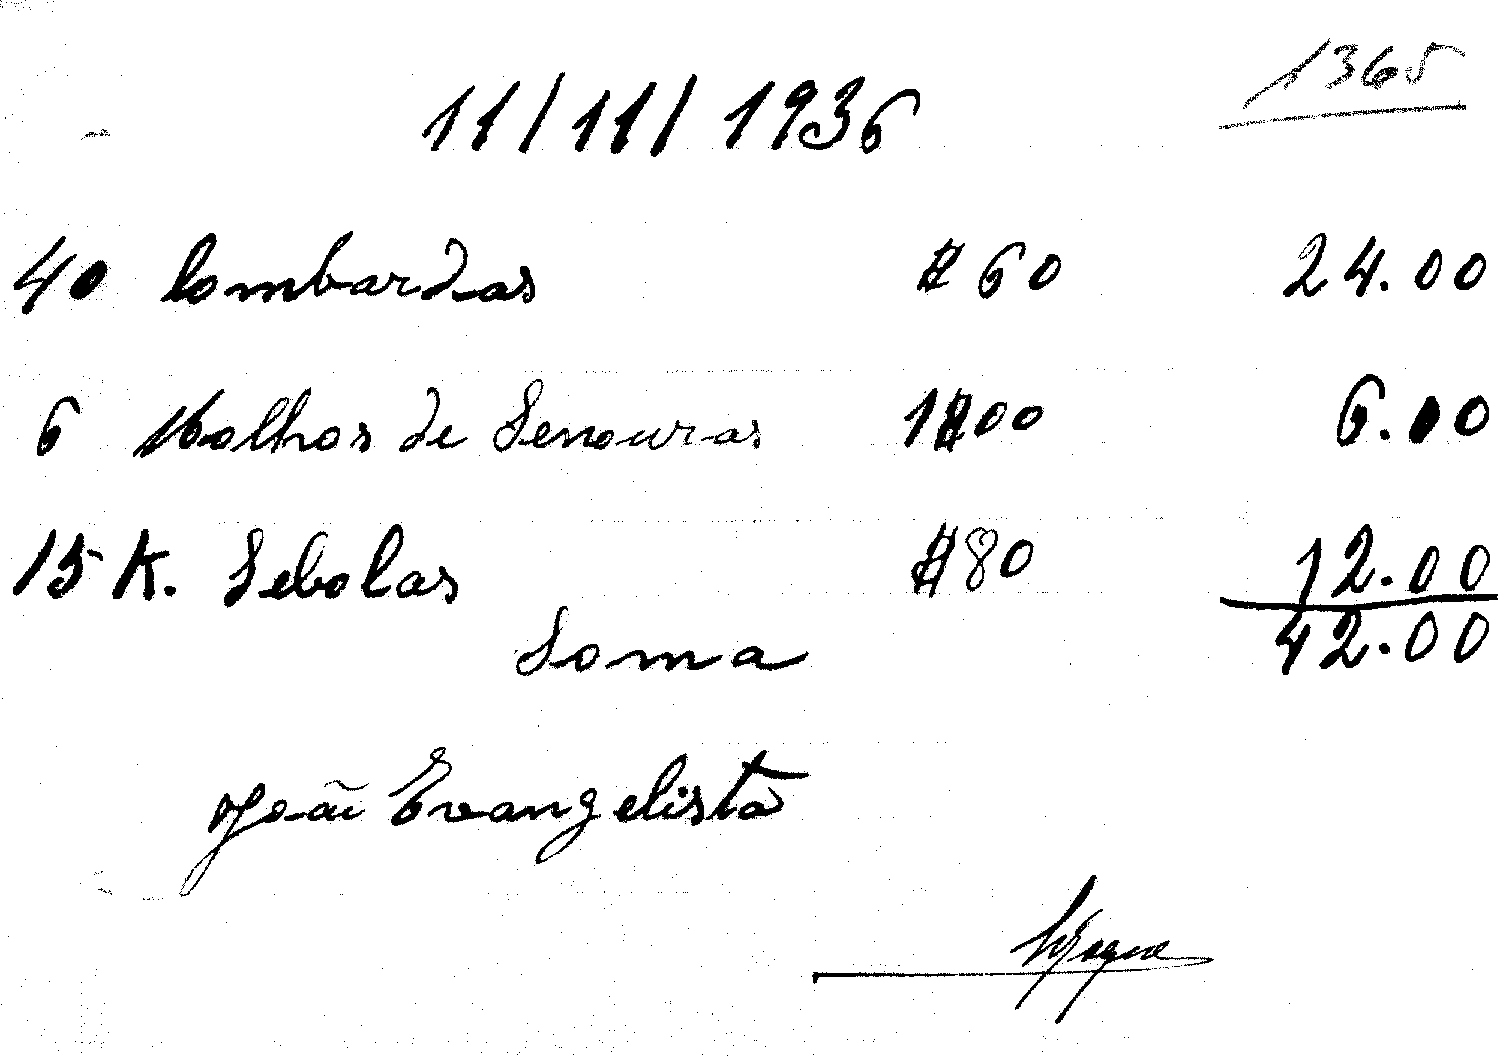 1365
11/11/1936
40 lombardas $60 24.00
6 Molhos de Senouras 1$00 6.00
15 K. Sebolas $80 12.00
Soma 42.00
João Evangelista